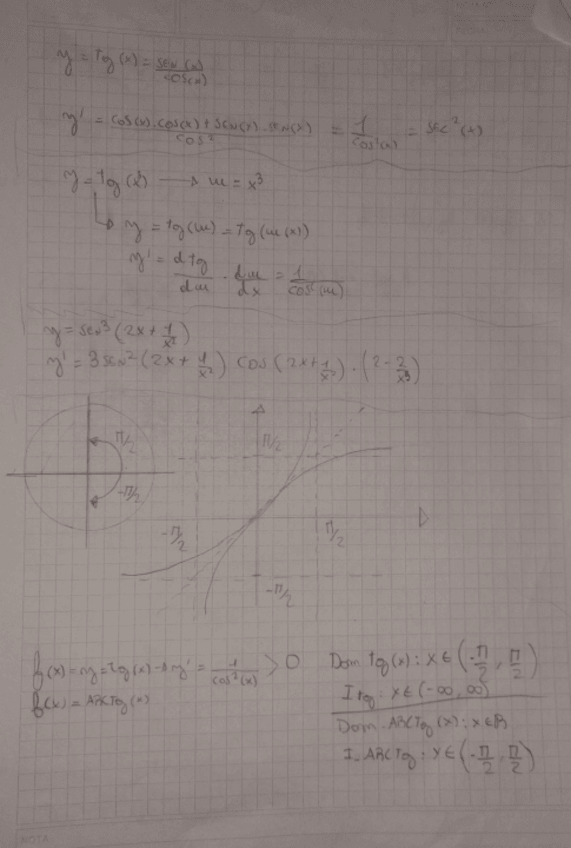 y = Tg(x) = sen(x)/cos(x)
y' = cos(x).cos(x) + sen(x).sen(x)/cos² = 1/cos²(x) = sec²(x)
y = Tg(x³) → u = x³
y = Tg(u) = Tg(u(x))
y' = dTg/du . du/dx = 1/cos²(u)
y = sen³(2x + 1/x²)
y' = 3 sen²(2x + 1/x²) cos(2x + 1/x²) . (2 - 2/x³)
π/2
-π/2
π/2
-π/2
π/2
-π/2
f(x) = y = Tg(x) → y' = 1/cos²(x) > 0
f(x) = ARCTg(x)
Dom Tg(x): x ∈ (-π/2, π/2)
I Tg: x ∈ (-∞, ∞)
Dom. ARCTg(x): x ∈ R
I. ARCTg: x ∈ (-π/2, π/2)
NOTA